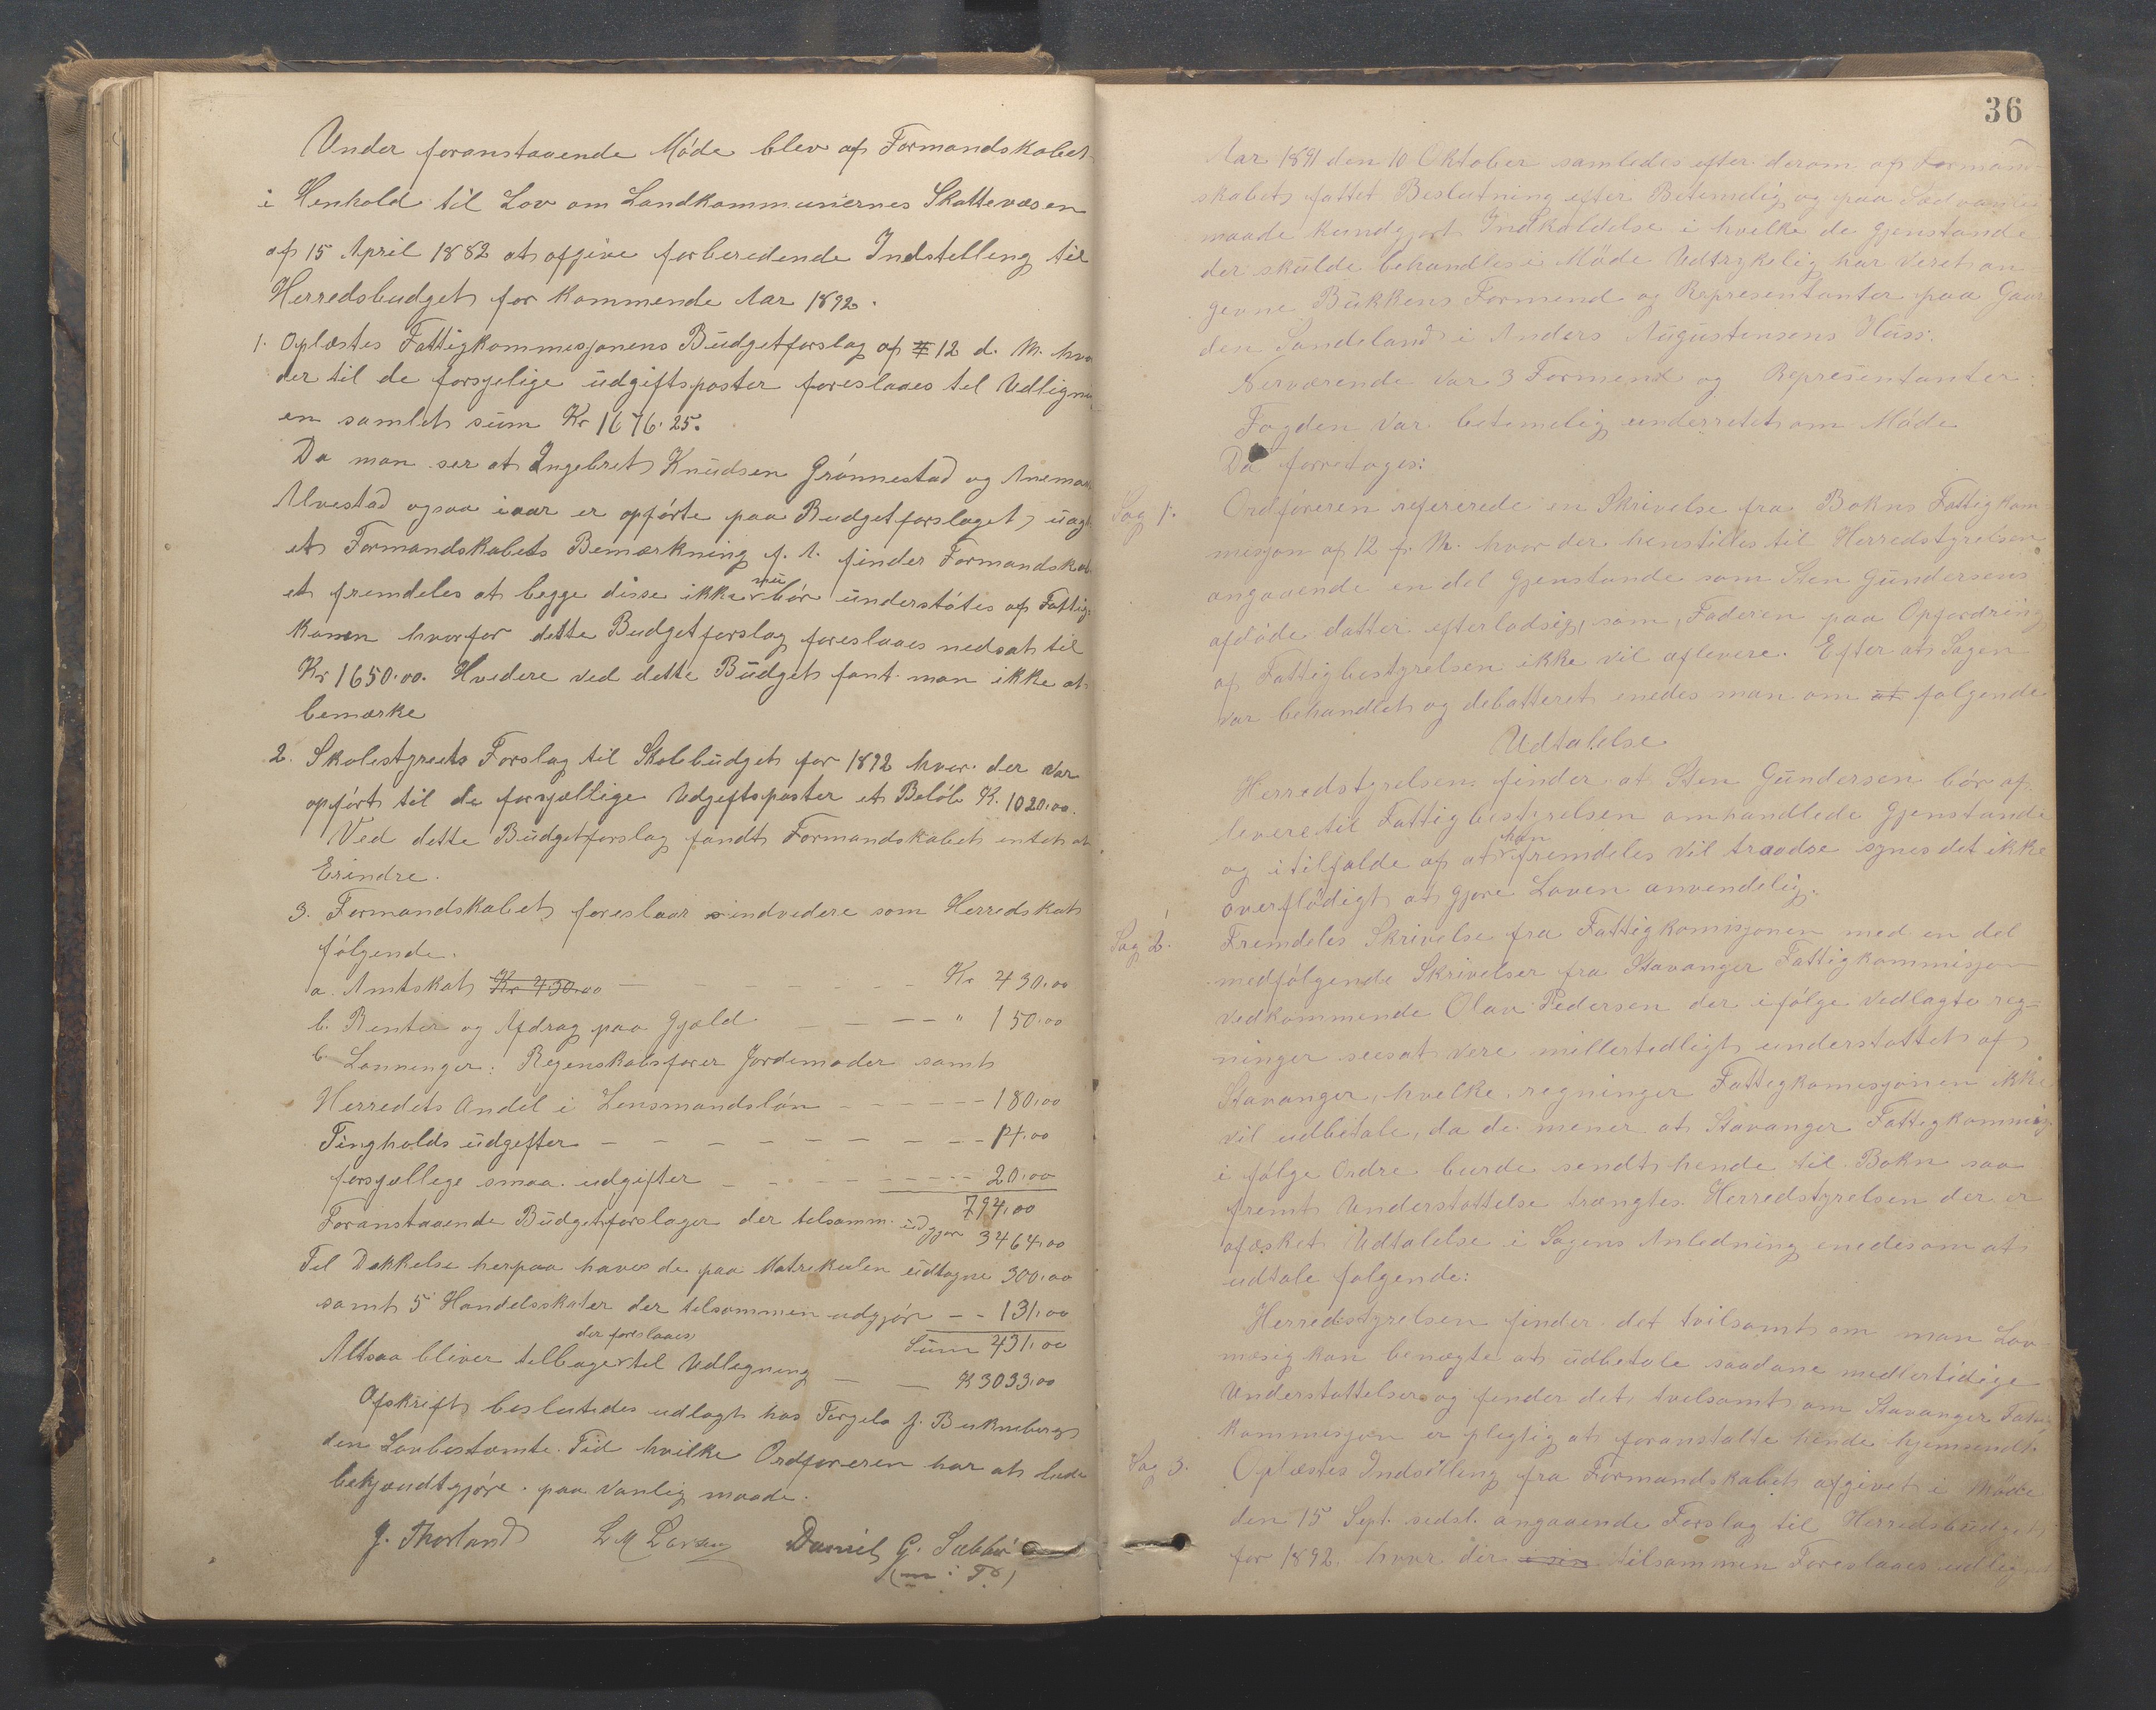 Under foranstaaende Møde blev af Formandskabet
i Henhold til Lov om Landkommunernes Skattevæsen
af 15 April 1882 at afgive forberedende Indstelling til
Herredsbudget for kommende Aar 1892.
1. Oplæstes Fattigkommisjonens Budgetforslag af 12 d. M. hvor
der til de forsjelige udgiftsposter foreslaaes tel Udligning
en samlet sum Kr 1676.25.
Da man ser at Ingebret Knudsen Grønnestad og Anema
Alvestad ogsaa iaar er opførte paa Budgetforslaget uagt
et Formandskabets Bemærkning f. A. finder Formandskab
et fremdeles at begge disse ikke nu bør understøtes af Fattig-
kasen hvorfor dette Budgetforslag foreslaaes nedsat til
Kr 1650.00. Hvedere ved dette Budget fant man ikke at
bemærke
2. Skolestyrets Forslag til Skolebudget for 1892 hvor der var
opført til de forsjællige Udgeftsposter et Beløb K. 1020.00.
Ved dette Budgetforslag fandt Formandskabet entet at
Erindre.
3. Formandskabet foreslaar indvedere som Herredskat
følgende.
a. Amtskat Kr 430.00 — — — Kr 430.00
b. Renter og Afdrag paa Gjæld — — — " 150.00
c. Lønninger: Regenskabsfører Jordemoder samt
Herredets Andel i Lensmandsløn — — — 180.00
Tingholds udgefter — — — 14.00
forsjællege smaa udgifter — — — 20.00
794.00
Foranstaaende Budgetforslager der telsamm. udgjør 3464.00
Tel Dækkelse herpaa haves de paa Matrekulen udtagne 300.00
samt 5 Handelsskater der telsommen udgjør — — 131.00
Sum 431.00
Altsaa bliver telbage der foreslaaes til Udlegning — — K 3033.00
Afskrift besluttedes udlagt hos Torgels J. Bukneberg
den Lovbestemte Tid hvilke Ordføreren har at lade
bekjændtgjøre paa vanlig maade.
J. Thorland L M Daniel G. Sæbbø
(m. i. P.)
36
Aar 1891 den 10 Oktober samledes efter derom af Formand-
skabet fattet Beslutning efter Betemelig og paa Sædvanlig
maade kundgjort Indkaldelse i hvelke de gjenstande
der skulde behandles i Møde Udtrykelig har Veret an-
gevne Bukkens Formend og Representanter paa Gaar-
den Sandeland i Anders Augustensens Huss.
Nerværende var 3 Formend og Representanter.
Fogden var betemelig underretet om Møde
Da forretoges:
Sag 1. Ordføreren refererede en Skrivelse fra Bokns Fattigkom-
misjon af 12 f. M. hvor der henstilles til Herredstyrelsen
angaaende en del gjenstande som Sten Gundersens
afdøde datter efterlodsig, som Faderen paa Opfordring
af Fattigbestyrelsen ikke vil aflevere. Efter at Sagen
var behandlet og debatteret enedes man om at følgende
Udtalelse
Herredstyrelsen finder at Sten Gundersen bør af-
levere til Fattigbestyrelsen omhandlede gjenstande
og i tilfalde af at han fremdeles vil traadse synes det ikke
overflødigt at gjøre Loven anvendelig.
Sag 2. Fremdeles Skrivelse fra Fattigkomisjonen med en del
medfølgende Skrivelser fra Stavanger Fattigkommisjon
vedkommende Olav Pedersen der ifølge vedlagte reg-
ninger seesat vere mellertedligt understøttet af
Stavanger, hvelke regninger Fattegkomesjonen ikke
vil udbetale, da de mener at Stavanger Fattegkommisj.
i følge Ordre burde sendt hende til Bokn saa
fremt Understøttelse trængtes Herredstyrelsen der er
afæsket Udtalelse i Sagens Anledning enedes om at
udtale følgende:
Herredstyrelsen finder det tvilsomt om man Lov-
mæsig kan benægte at udbetale saadane medlertidige
Understøttelser og fender det tvelsomt om Stavanger Fattig-
kommesjon er plegtig at foranstalte hende hjemsendt.
Sag 3. Oplæstes Indstilling fra Formandskabet afgivet i Møde
den 15 Sept. sidst. angaaende Forslag til Herredsbudget
for 1892 hvor der tilsammen Foreslaaes udlignet